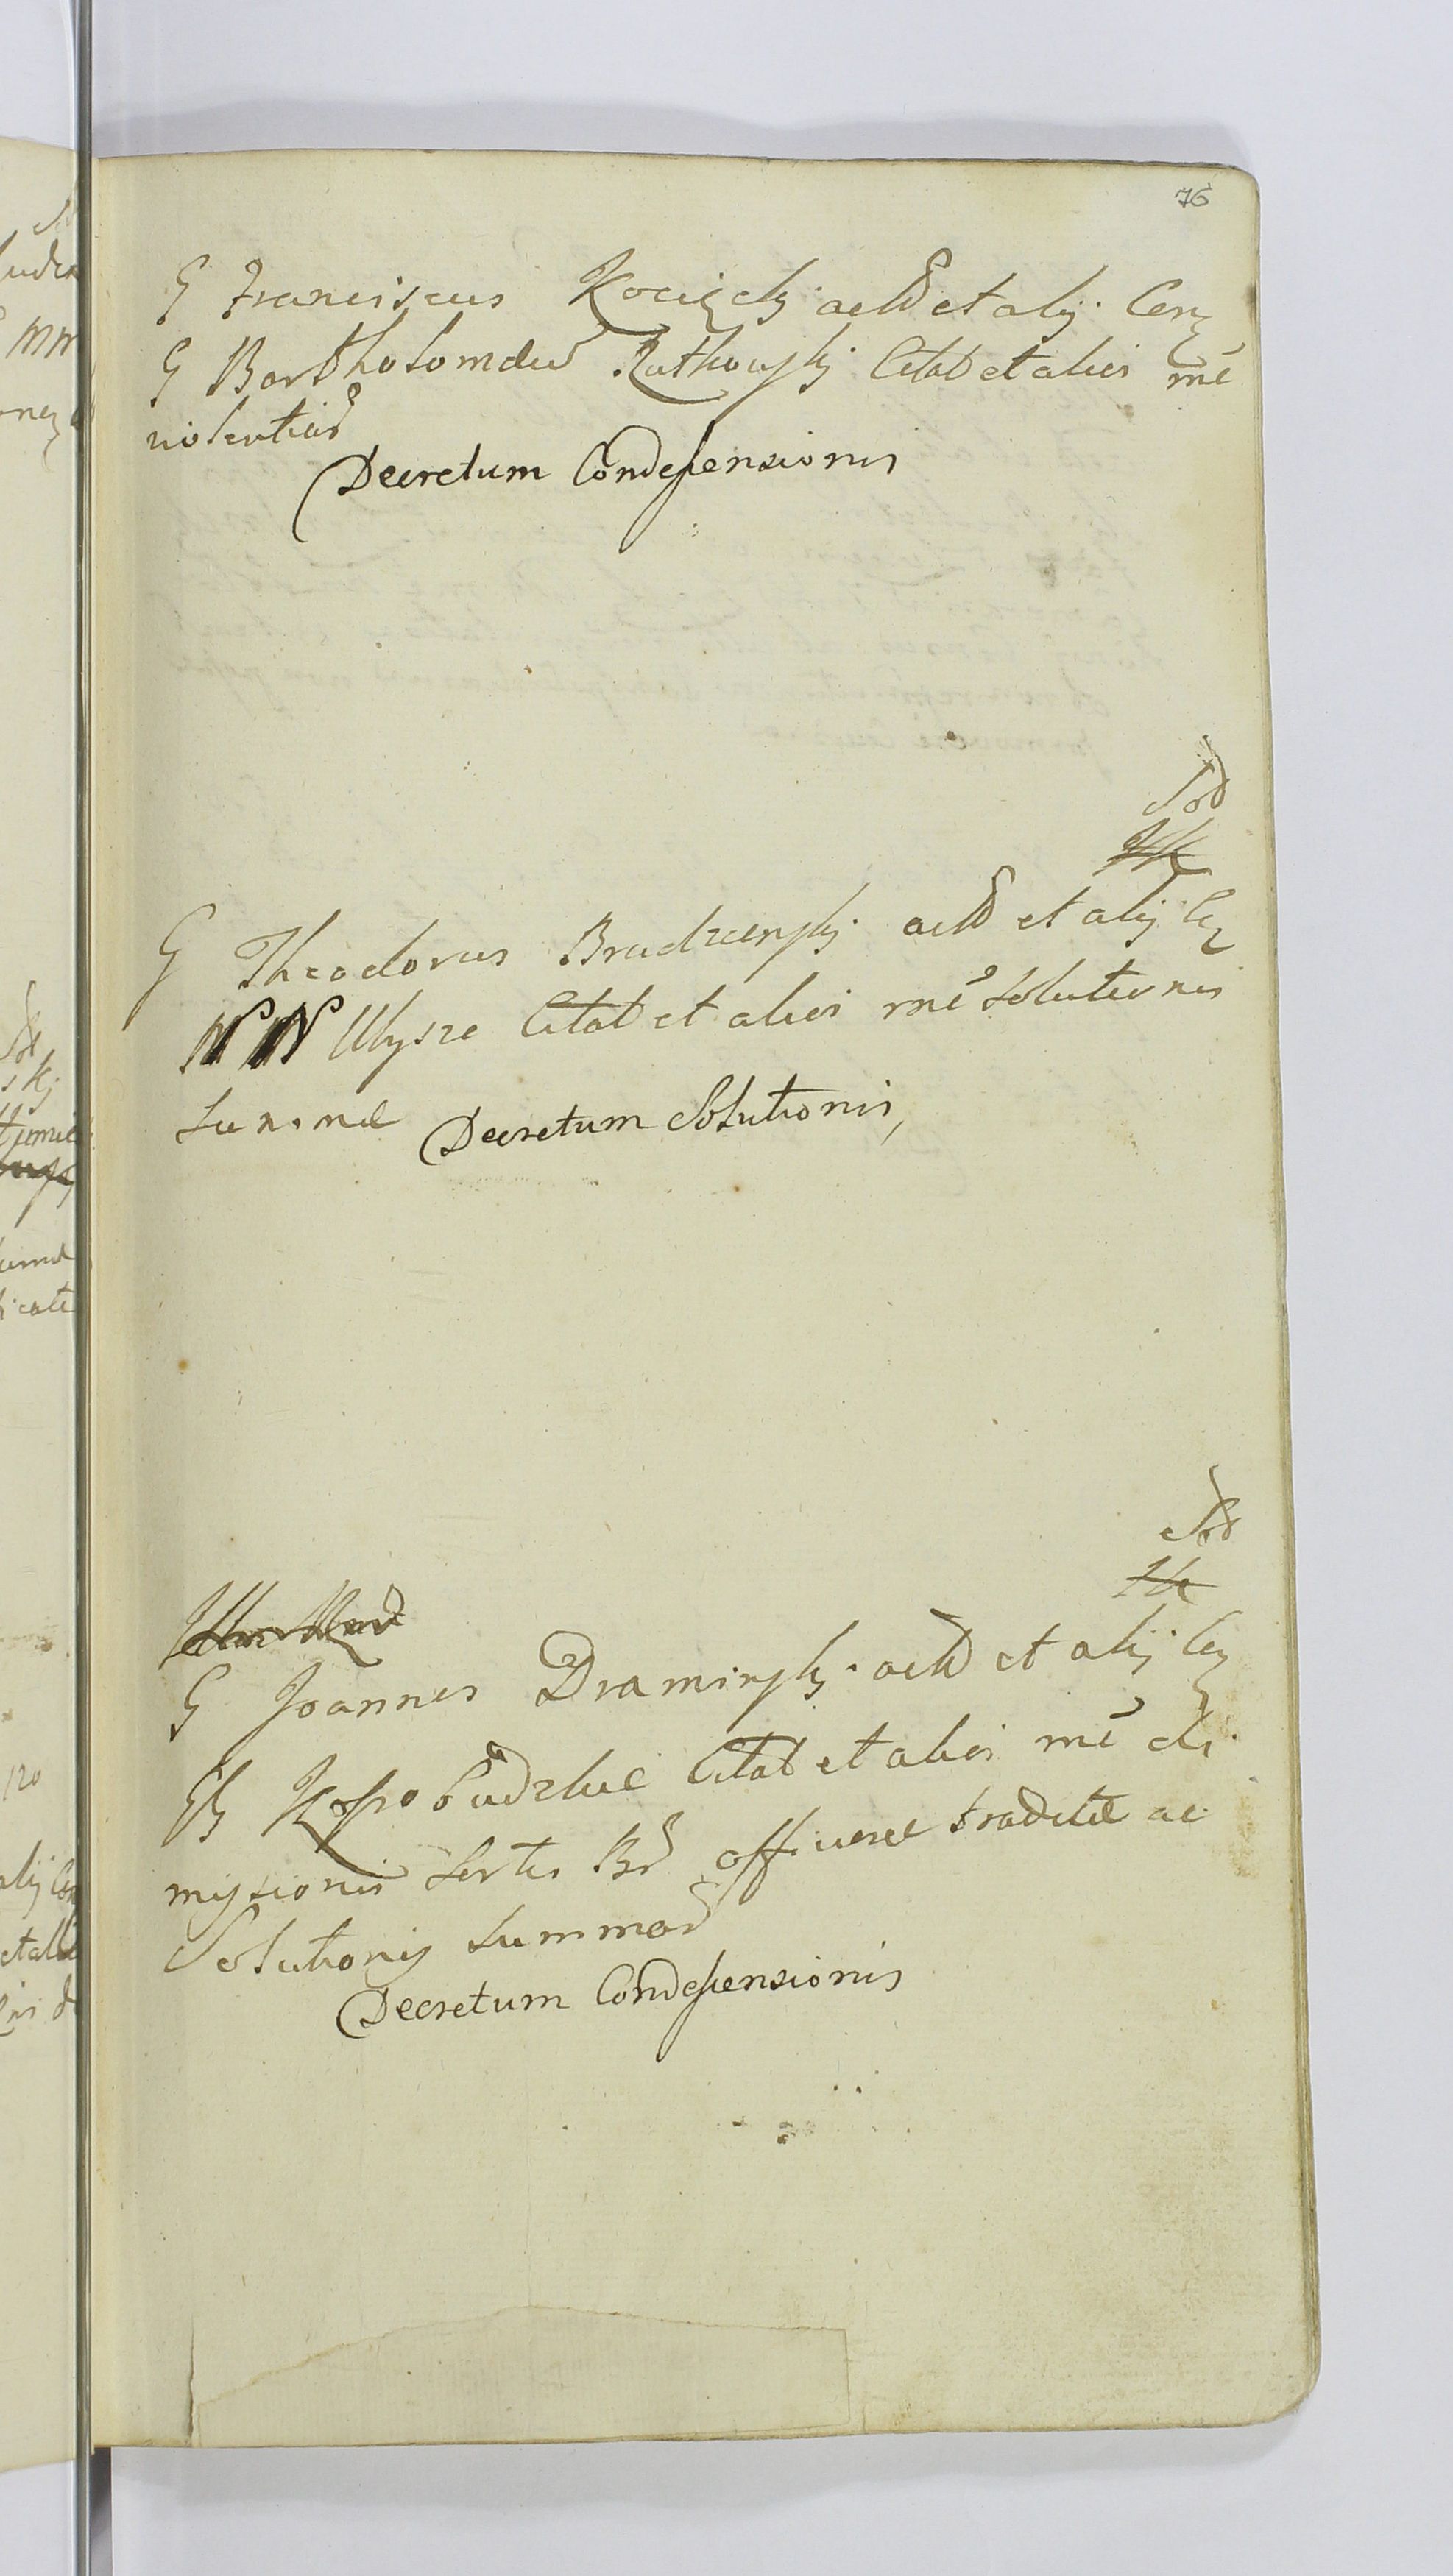 76
G Franciscus Kocięcky act et alij Con
G Bartholomeus Rutkowsky Citat et alios me
violentias
Decretum Condescensionis
Sol
G Theodorus Brudzensky act et alij Con
NN Ulysze Citat et alios me solutionis
summae Decretum Solutionis,
Sol
G Joannes Draminsky act et alij Con
Citat et alios me di
missionis sortis Br traditae ac
Solutionis summae
Decretum Condescensionis